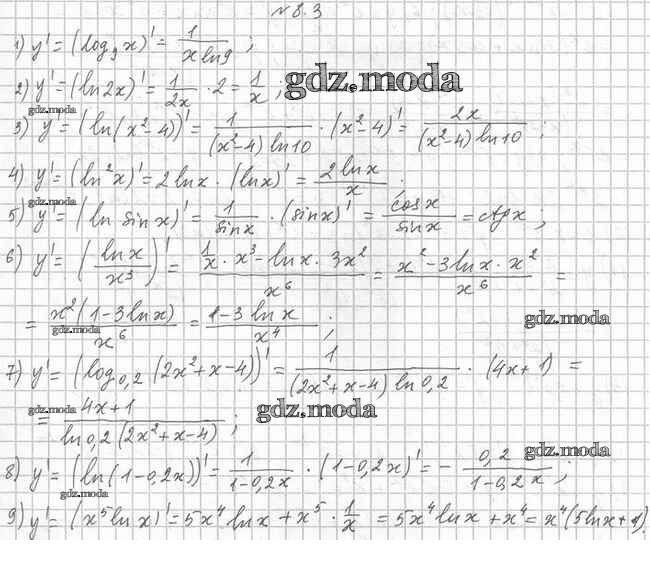 № 8.3
1) y' = (log₉x)' = 1/(x ln9) ;
gdz.moda
2) y' = (ln2x)' = 1/(2x) · 2 = 1/x ;
gdz.moda
3) y' = (ln(x²-4))' = 1/((x²-4) ln10) · (x²-4)' = 2x/((x²-4) ln10) ;
4) y' = (ln²x)' = 2lnx · (lnx)' = (2lnx)/x .
gdz.moda
5) y' = (ln sinx)' = 1/sinx · (sinx)' = cosx/sinx = ctgx ;
6) y' = (lnx/x³)' = (1/x · x³ - lnx · 3x²)/x⁶ = (x² - 3lnx · x²)/x⁶ =
gdz.moda
= x²(1-3lnx)/x⁶ = (1-3lnx)/x⁴ ;
gdz.moda
7) y' = (log₀,₂(2x²+x-4))' = 1/((2x²+x-4) ln0,2) · (4x+1) =
gdz.moda gdz.moda
= (4x+1)/(ln0,2(2x²+x-4)) ;
gdz.moda
8) y' = (ln(1-0,2x))' = 1/(1-0,2x) · (1-0,2x)' = - 0,2/(1-0,2x) ;
gdz.moda
9) y' = (x⁵lnx)' = 5x⁴lnx + x⁵ · 1/x = 5x⁴lnx + x⁴ = x⁴(5lnx+1).